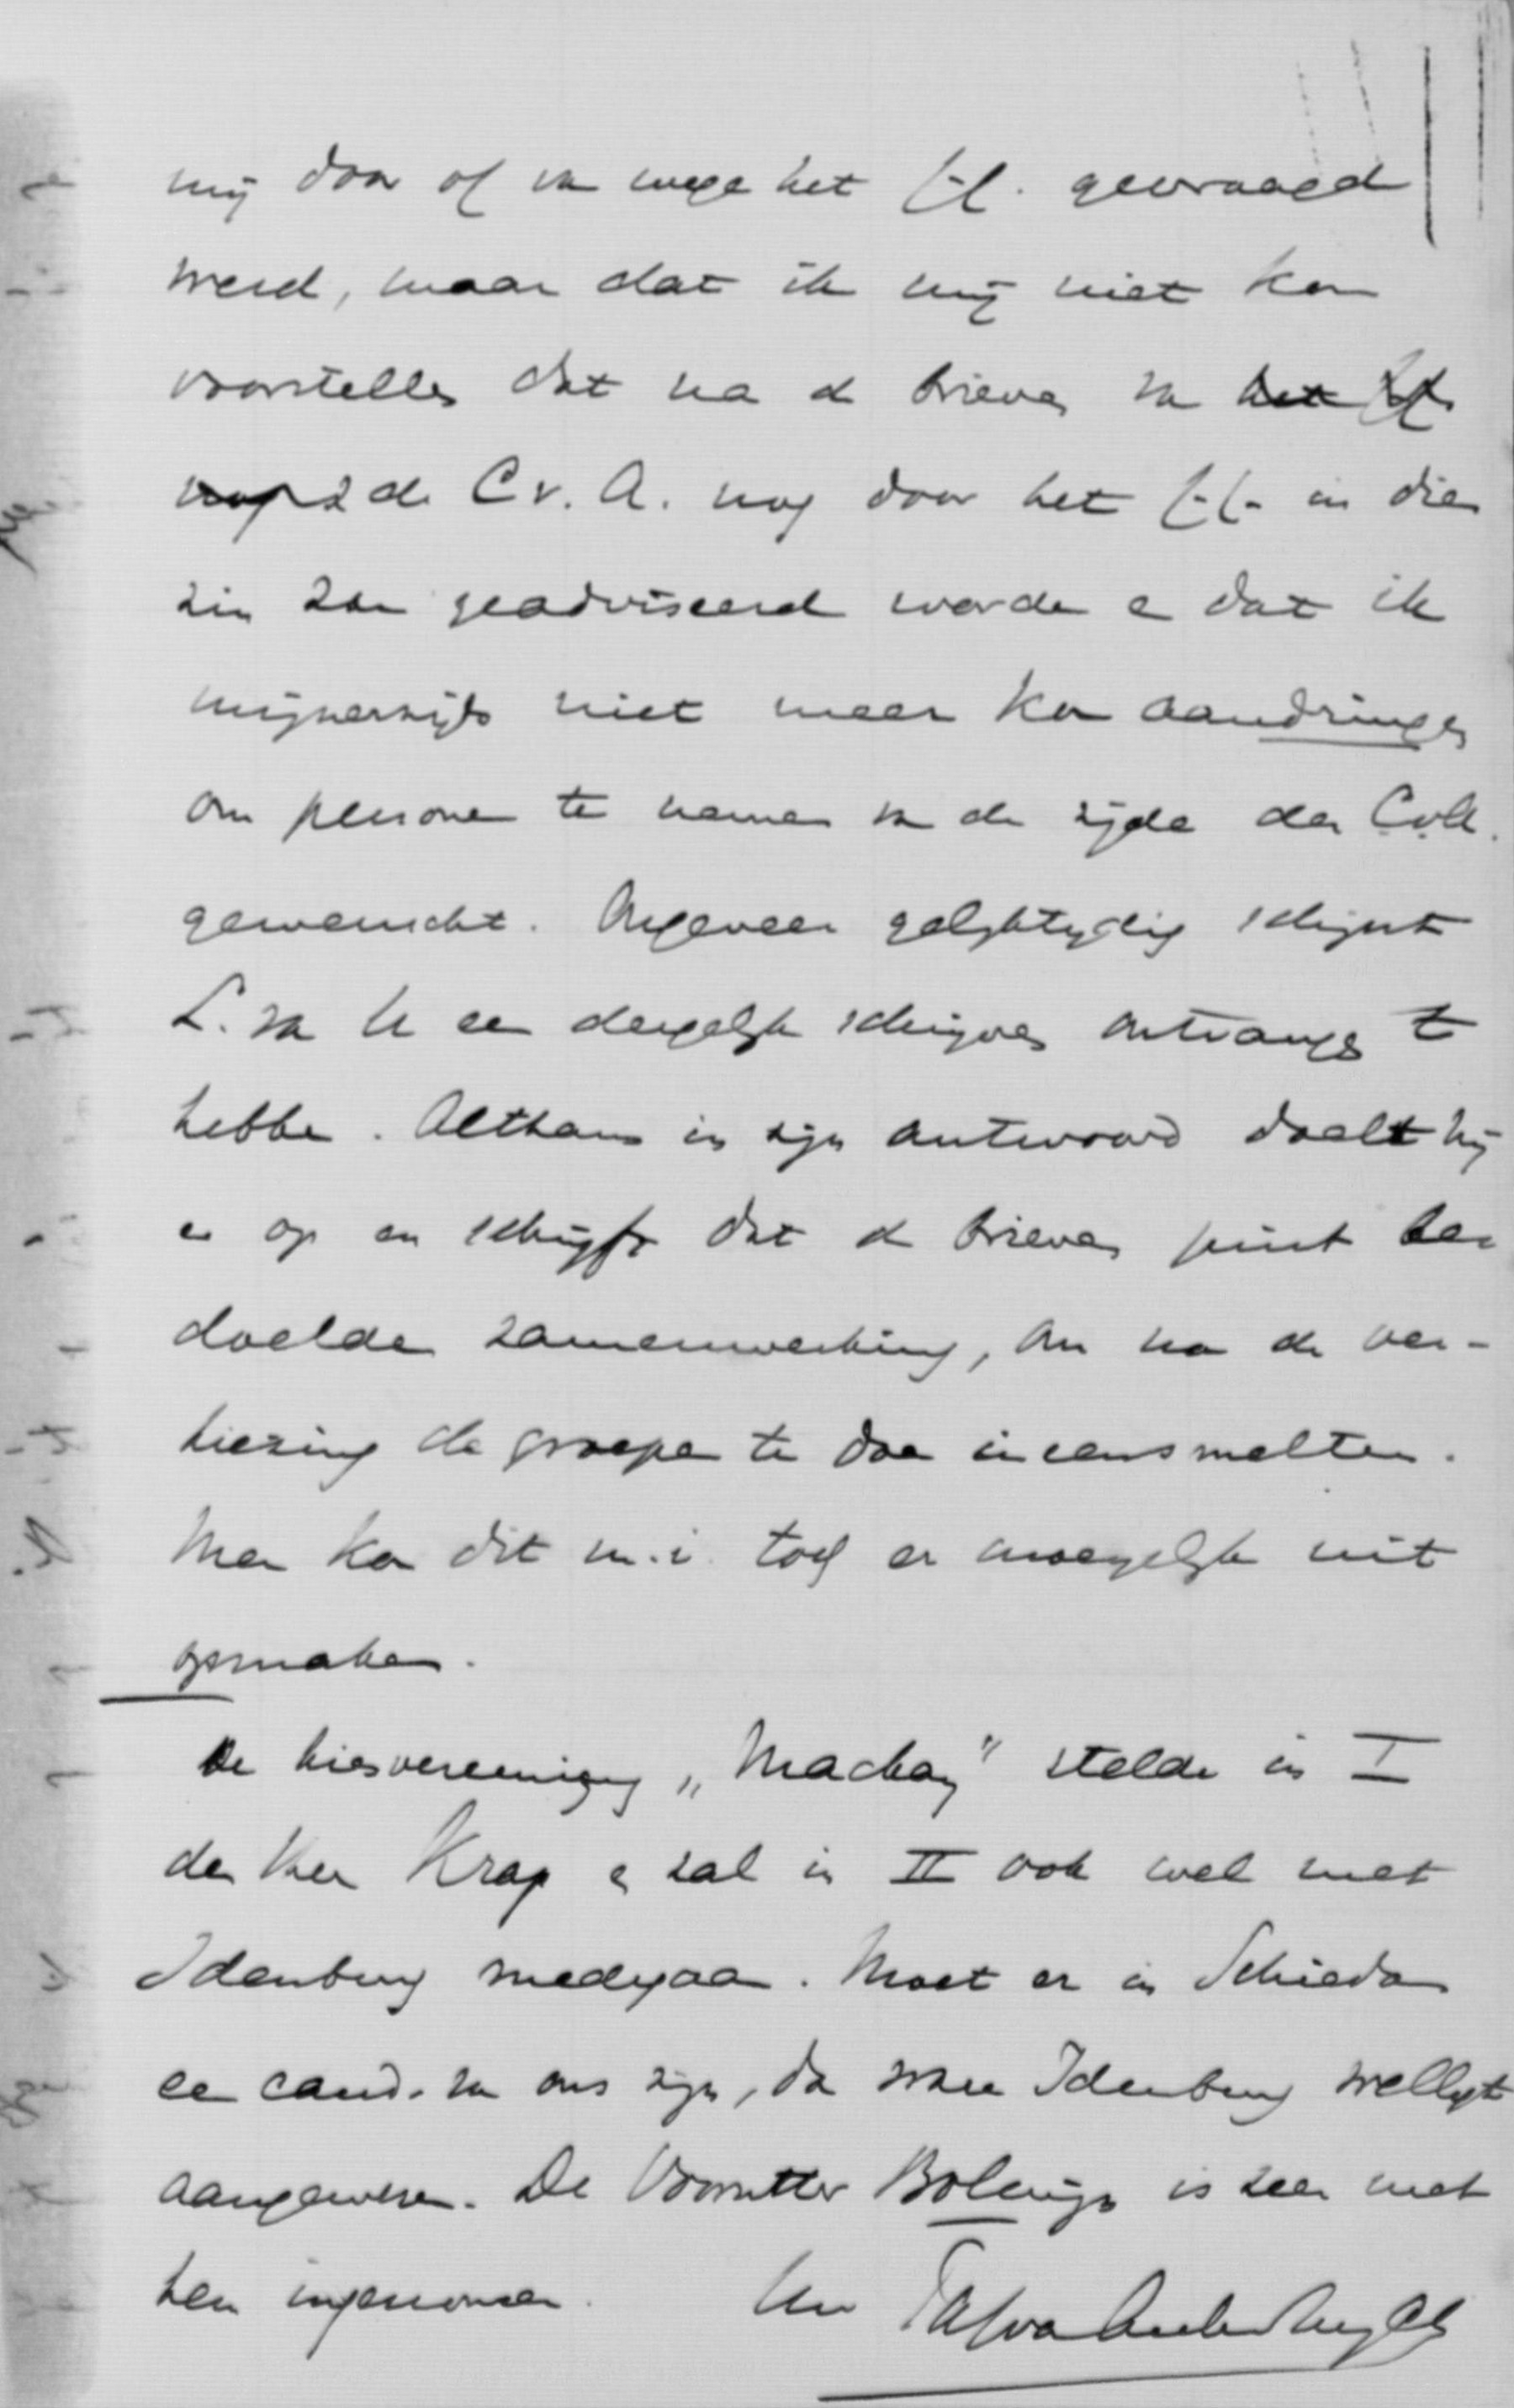 mij door of van wege het C.C. gevraagd
werd, maar dat ik mij niet kan
voorstellen dat na de brieven van
de C.v.A. nog door het C.C. in dien
zin zou geadviseerd worden en dat ik
mijnerzijds niet meer kan aandringen
om personen te nemen van de zijde der C.v.A.
gewenscht. Ongeveer gelijktijdig schijnt
L. van U een dergelijk schrijven ontvangen te
hebben. Althans in zijn antwoord doelt hij
er op en schrijft dat de brieven juist be
doelden samenwerking, om na de ver-
kiezing de groepen te doen ineensmelten.
Men kan dit m.i. toch er moeyelijk uit
opmaken.
De kiesvereeniging „Mackay" stelde in I
den heer Krap en zal in II ook wel met
Idenburg medegaan. Moet er in Schiedam
een cand. van ons zijn, dan ware Idenburg wellicht
aangewezen. De Voorzitter is zeer met
hem ingenomen. Uw